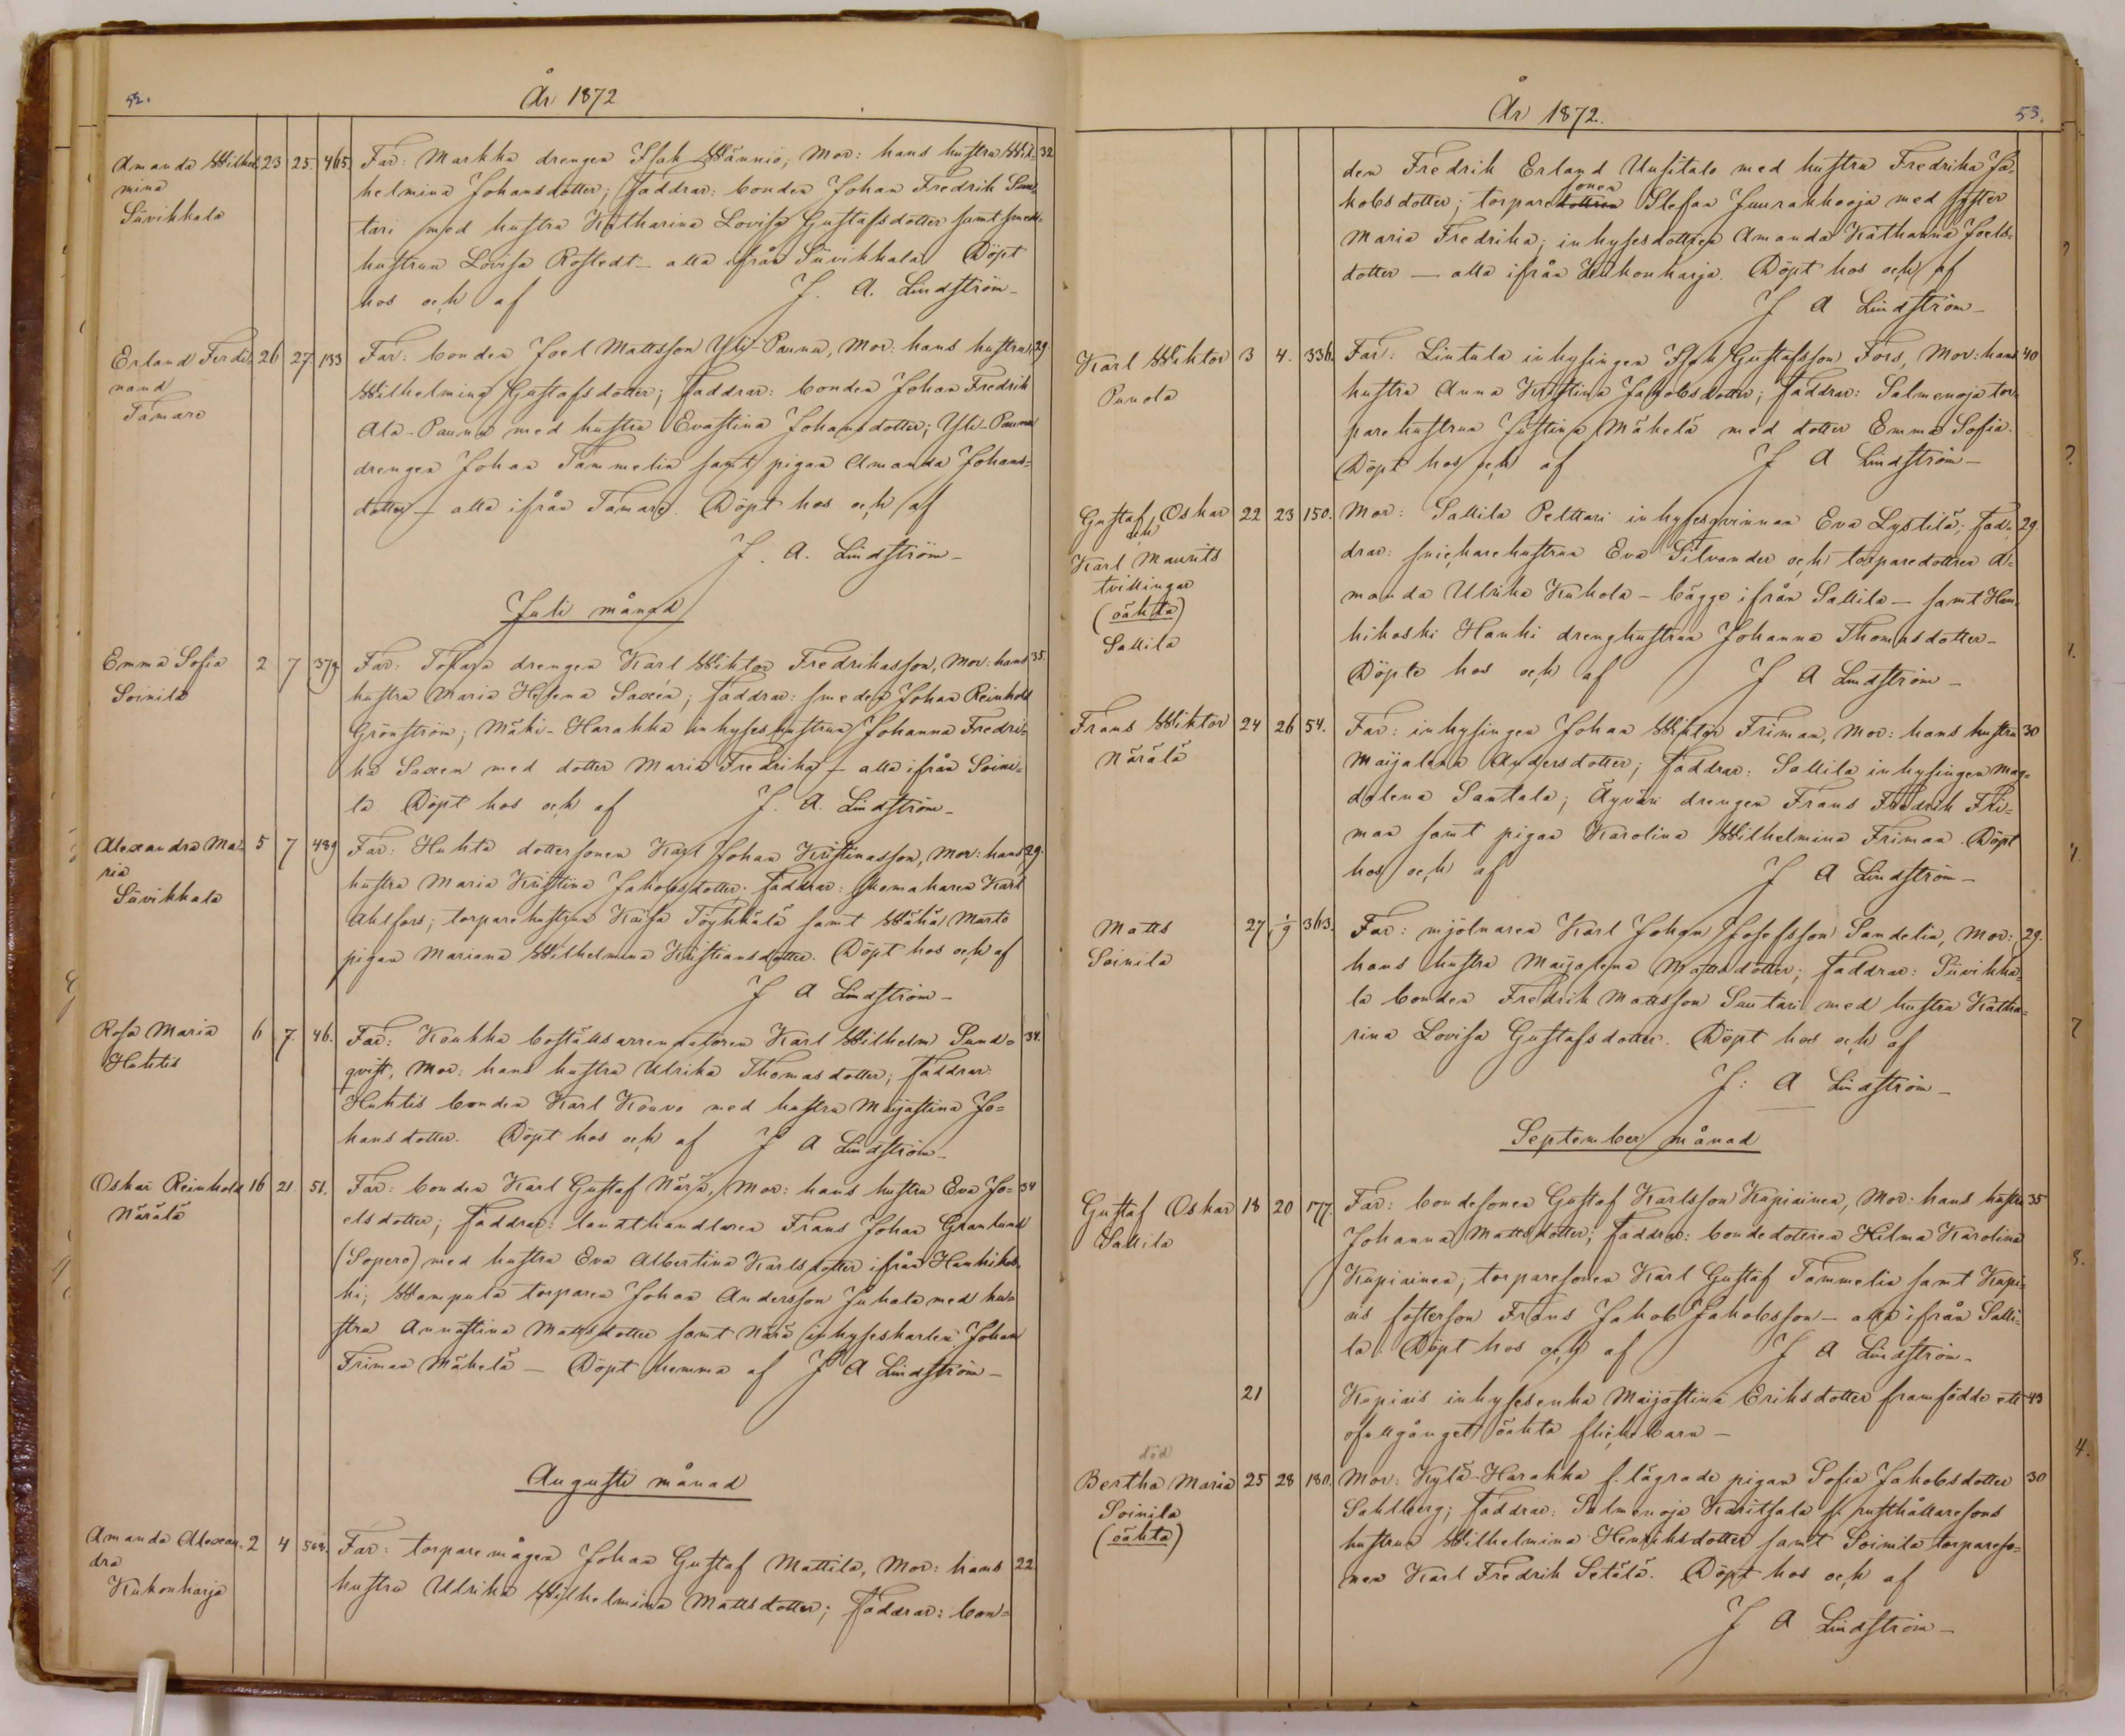 52.
År 1872
Amanda Wilhel- 23 25. 465. Far: Markka drengen Isak Männiö, Mor: hans hustru Wil- 32
mina helmina Johansdotter; faddrar: bonden Johan Fredrik Suu-
Siivikkala tari med hustru Katharina Lovisa Gustafsdotter samt smeds-
hustrun Lovisa Rostedt – alla ifrån Siivikkala. Döpt
hos och af J. A. Lindström –
Erland Ferdi- 26 27 133 Far: bonden Joel Mattsson Yli-Pauna, Mor: hans hustru 29
nand Wilhelmina Gustafsdotter; faddrar: bonden Johan Fredrik
Tamare Ala-Pauna med hustru Evastina Johansdotter; Yli-Pauna
drengen Johan Tammelin samt pigan Amanda Johans-
dotter – alla ifrån Tamare. Döpt hos och af
J. A. Lindström –
Juli månad
Emma Sofia 2 7 379 Far: drengen Karl Wiktor Fredrikasson, Mor: hans 35.
Soinila hustru Maria Helena Saxén; faddrar: smeden Johan Reinhold
Grönström; Mäki-Harakka inhyseshustrun Johanna Fredri-
ka Saxen med dotter Maria Fredrika – alla ifrån Soini-
la. Döpt hos och af J. A. Lindström –
Alexandra Ma- 5 7 489 Far: Huhta dottersonen Karl Johan Kristinasson, Mor: hans 29.
ria hustru Maria Kristina Jakobsdotter. faddrar: skomakaren Karl
Siivikkala Ahlfors; torparehustrun Kaisa Töykkälä samt Wähä Marto
pigan Mariana Wilhelmina Kristiansdotter. Döpt hos och af
J A Lindström –
Rosa Maria 6 7. 46. Far: Koukka boställsarrendatoren Karl Wilhelm Sund- 34.
Huhtis qvist, Mor: hans hustru Ulrika Thomasdotter; faddrar:
Huhtis bonden Karl Kouvo med hustru Maijastina Jo-
hansdotter. Döpt hos och af J A Lindström –
Oskar Reinhold 16 21. 51. Far: bonden Karl Gustaf Närjä, Mor: hans hustru Eva Jo- 34
Närälä elsdotter; faddrar: landthandlaren Frans Johan Granlund
(Sopero) med hustru Eva Albertina Karlsdotter ifrån Hanhikos-
ki; Wampula torparen Johan Andersson Juhala med hu-
stru Annastina Mattsdotter samt Närä inhyseskarlen Johan
Friman Mäkelä – Döpt hemma af J A Lindström –
Augusti månad
Amanda Alexan- 2 4 Far: torparemågen Johan Gustaf Mattila, Mor: hans 22.
dra hustru Ulrika Wilhelmina Mattsdotter; faddrar: bon-
Kukonharja
År 1872. 53.
den Fredrik Erland Uusitalo med hustru Fredrika Ja-
sonen
kobsdotter; torparedottren Stefan Juurakkooja med syster
Maria Fredrika; inhysesdottren Amanda Katharina Joels-
dotter – alla ifrån Kukonharja. Döpt hos och af
J A Lindström –
Karl Wiktor 3 4. 336. Far: Lintula inhysingen Isak Gustafsson Fors, Mor: hans 40
Punola hustru Anna Kristina Jakobsdotter; faddrar: Salmenoja tor-
parehustrun Justina Mäkelä med dotter Emma Sofia.
Döpt hos och af J A Lindström –
Gustaf Oskar 22 23 150. Mor: Sallila Pelttari inhysesqvinnan Eva Lystilä; fad- 29.
och drar: snickarehustrun Eva Silvander och torparedottren A-
Karl Maurits manda Ulrika Kukola – bägge ifrån Sallila – samt Han-
tvillingar hikoski Hauki drenghustrun Johanna Thomasdotter –
(oäkta) Döpte hos och af J A Lindström –
Sallila
Frans Wiktor 24 26 54. Far: inhysingen Johan Wiktor Friman, Mor: hans hustru 30
Närälä Maijalena Andersdotter; faddrar: Sallila inhysingen Mag-
dalena Santala; Äyväri drengen Frans Fredrik Fri-
man samt pigan Karolina Wilhelmina Friman. Döpt
hos och af J A Lindström –
Matts 27 1/9 363. Far: mjölnaren Karl Johan Josefsson Sandelin, Mor: 29.
Soinila hans hustru Maijalena Mattsdotter; faddrar: Siivikka-
la bonden Fredrik Mattsson Suutari med hustru Katha-
rina Lovisa Gustafsdotter. Döpt hos och af
J: A Lindström –
September månad
Gustaf Oskar 18 20 177. Far: bondesonen Gustaf Karlsson Kupiainen, Mor: hans hustru 35
Sallila Johanna Mattsdotter; faddrar: bondedottren Hilma Karolina
Kupiainen, torparesonen Karl Gustaf Tammelin samt Kupi-
ais fosterson Frans Jakob Jakobsson – alla ifrån Salli-
la. Döpt hos och af J A Lindström –
21 Kupiais inhysesenka Maijastina Eriksdotter framfödde ett 43
ofullgånget oäkta flickebarn –
död
Bertha Maria 25 28 180. Mor: Kylä-Harakka f. lägrade pigan Sofia Jakobsdotter 30
Soinila Sahlberg; faddrar: Salmenoja Karitsala f. rusthållaresons
(oäkta) hustrun Wilhelmina Henriksdotter samt Soinila torpareso-
nen Karl Fredrik Setälä. Döpt hos och af
J A Lindström –